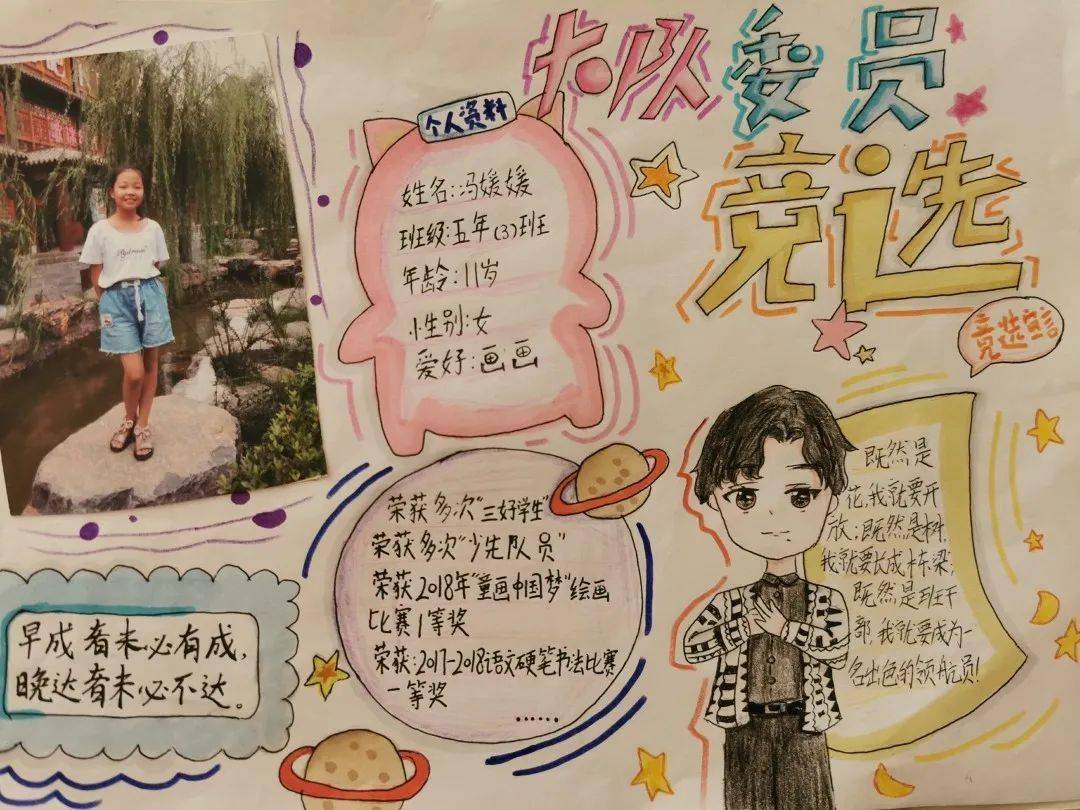 大队委员
竞选
个人资料
姓名:冯媛媛
班级:五年(3)班
年龄:11岁
性别:女
爱好:画画
竞选宣言
既然是
花,我就要开
放;既然是树,
我就要长成栋梁;
既然是班干
部,我就要成为一
名出色的领航员!
荣获多次"三好学生"
荣获多次"少先队员"
荣获2018年"童画中国梦"绘画
比赛1等奖
荣获:2017-2018语文硬笔书法比赛
一等奖
......
早成者未必有成,
晚达者未必不达。